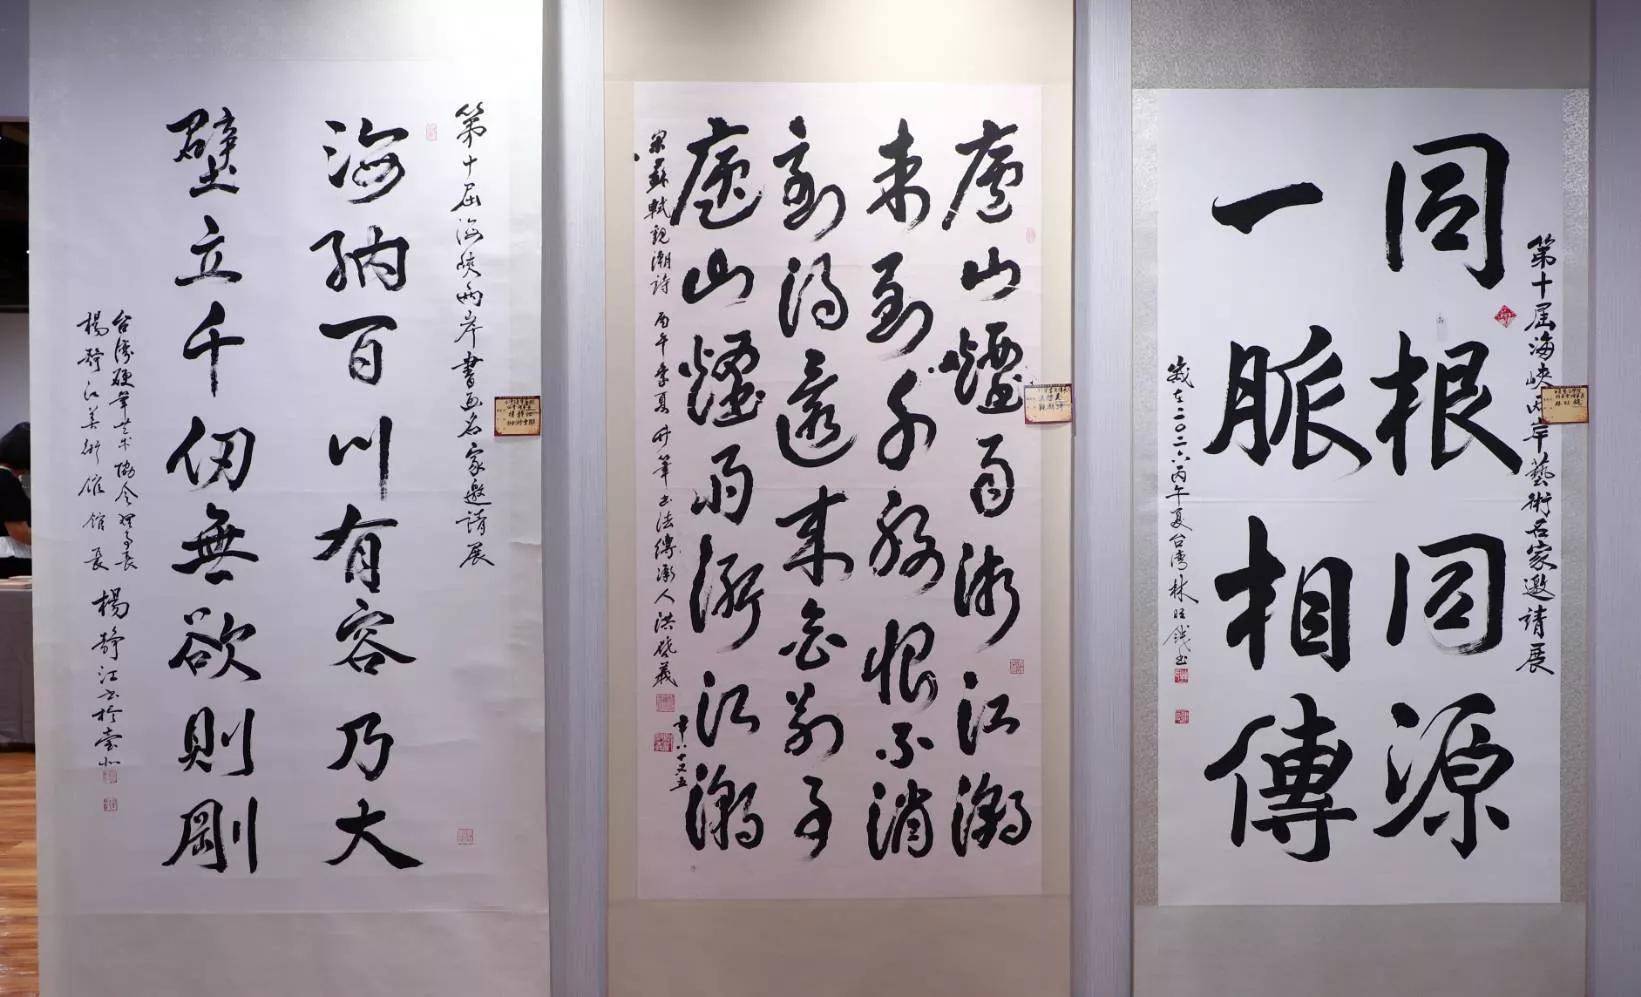 第十届海峽兩岸藝術名家邀請展
同根同源
一脈相傳
歲在二〇二六丙午夏台灣林旺鐵书
廬山煙雨浙江潮
未到千般恨不消
到得還來無别事
廬山煙雨浙江潮
宋蘇軾觀潮詩 丙午季夏 书法傳承人洪啟義
年八十又五
第十屆海峽兩岸書画名家邀請展
海納百川有容乃大
壁立千仞無欲則剛
台灣硬筆艺术協会理事長
楊靜江美術館館長 楊靜江书於臺北